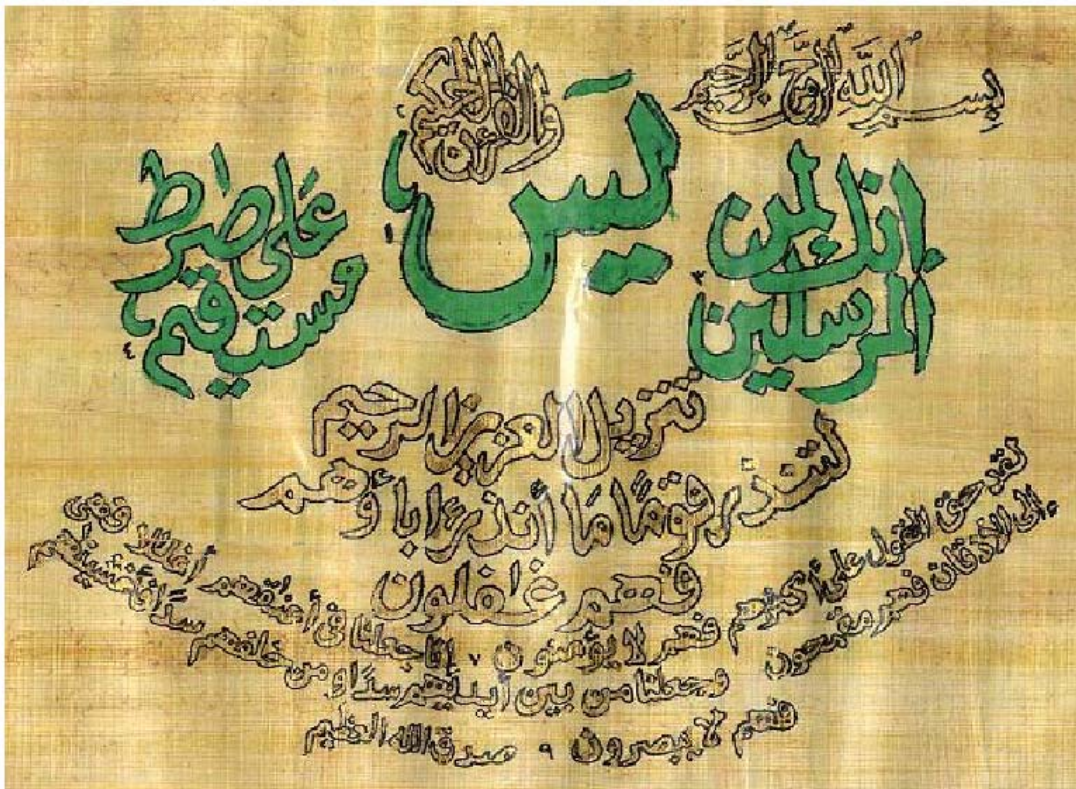 بِسْمِ اللَّهِ الرَّحْمَنِ الرَّحِيمِ
يَس ١
والقرءان الحكيم
إنك لمن
المرسلين ٣
عَلى صرٰط
مستقيم ٤
تنزيل العزيز الرحيم
لتنذر قومًا مَا أنذر ءاباؤهم
فهم غٰفلون
لقد حق القول على أكثرهم فهم لا يؤمنون ٧ إنا جعلنا فى أعنٰقهم أغلٰلا فهى
إلى الأذقان فهم مقمحون وجعلنا من بين أيديهم سدًا ومن خلفهم سدًا فأغشينٰهم
فهم لا يبصرون ٩ صدق الله العظيم